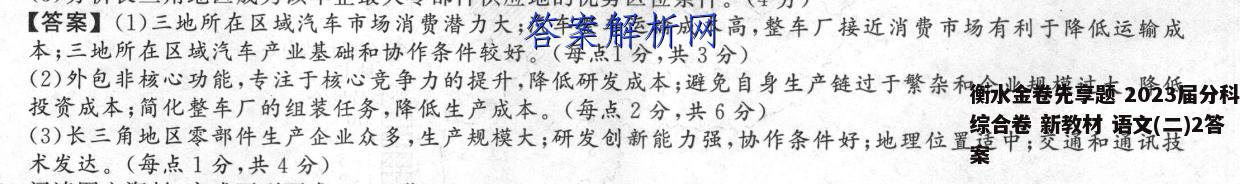 【答案】(1)三地所在区域汽车市场消费潜力大;成本高,整车厂接近消费市场有利于降低运输成
本;三地所在区域汽车产业基础和协作条件较好。(每点1分,共3分)
(2)外包非核心功能,专注于核心竞争力的提升,降低研发成本;避免自身生产链过于繁杂和企业规模过大,降低
投资成本;简化整车厂的组装任务,降低生产成本。(每点2分,共6分)
(3)长三角地区零部件生产企业众多,生产规模大;研发创新能力强,协作条件好;地理位置适中;交通和通讯技
术发达。(每点1分,共4分)
答案解析网
衡水金卷先享题 2023届分科
综合卷 新教材 语文(二)2答
案